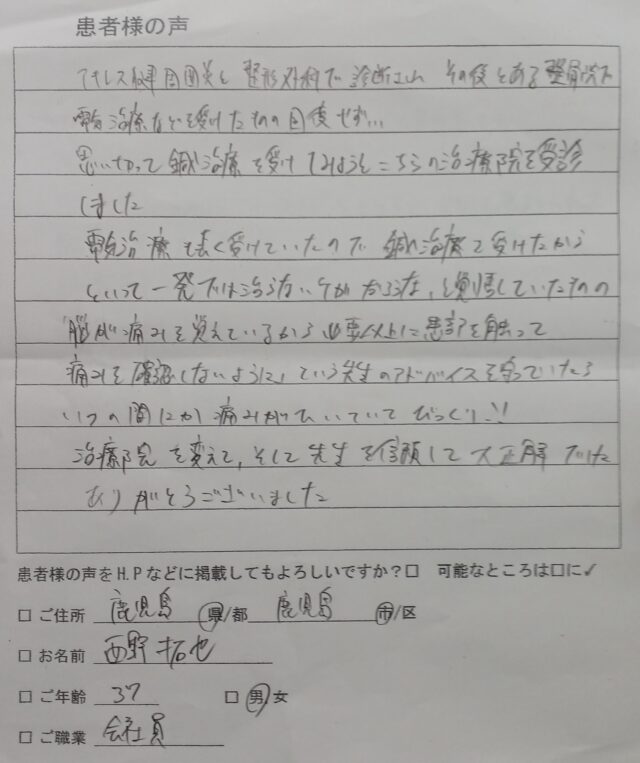 患者様の声
アキレス腱周囲炎と整形外科で診断され その後とある整骨院で
電気治療などを受けたものの回復せず…
思いきって鍼治療を受けてみようとこちらの治療院を受診
しました
電気治療を長く受けていたので 鍼治療を受けたから
といって一発では治らないが かかるな、と覚悟していたものの
「脳が痛みを覚えているから必要以上に患部を触って
痛みを確認しないように」という先生のアドバイスを守っていたら
いつの間にか痛みがひいていてびっくり!!
治療院を変えて、そして先生を信頼して大正解でした
ありがとうございました
患者様の声をH.Pなどに掲載してもよろしいですか?□ 可能なところは□に✓
□ ご住所 鹿児島 県/都 鹿児島 市/区
□ お名前 西野 拓也
□ ご年齢 37 □ 男 女
□ ご職業 会社員